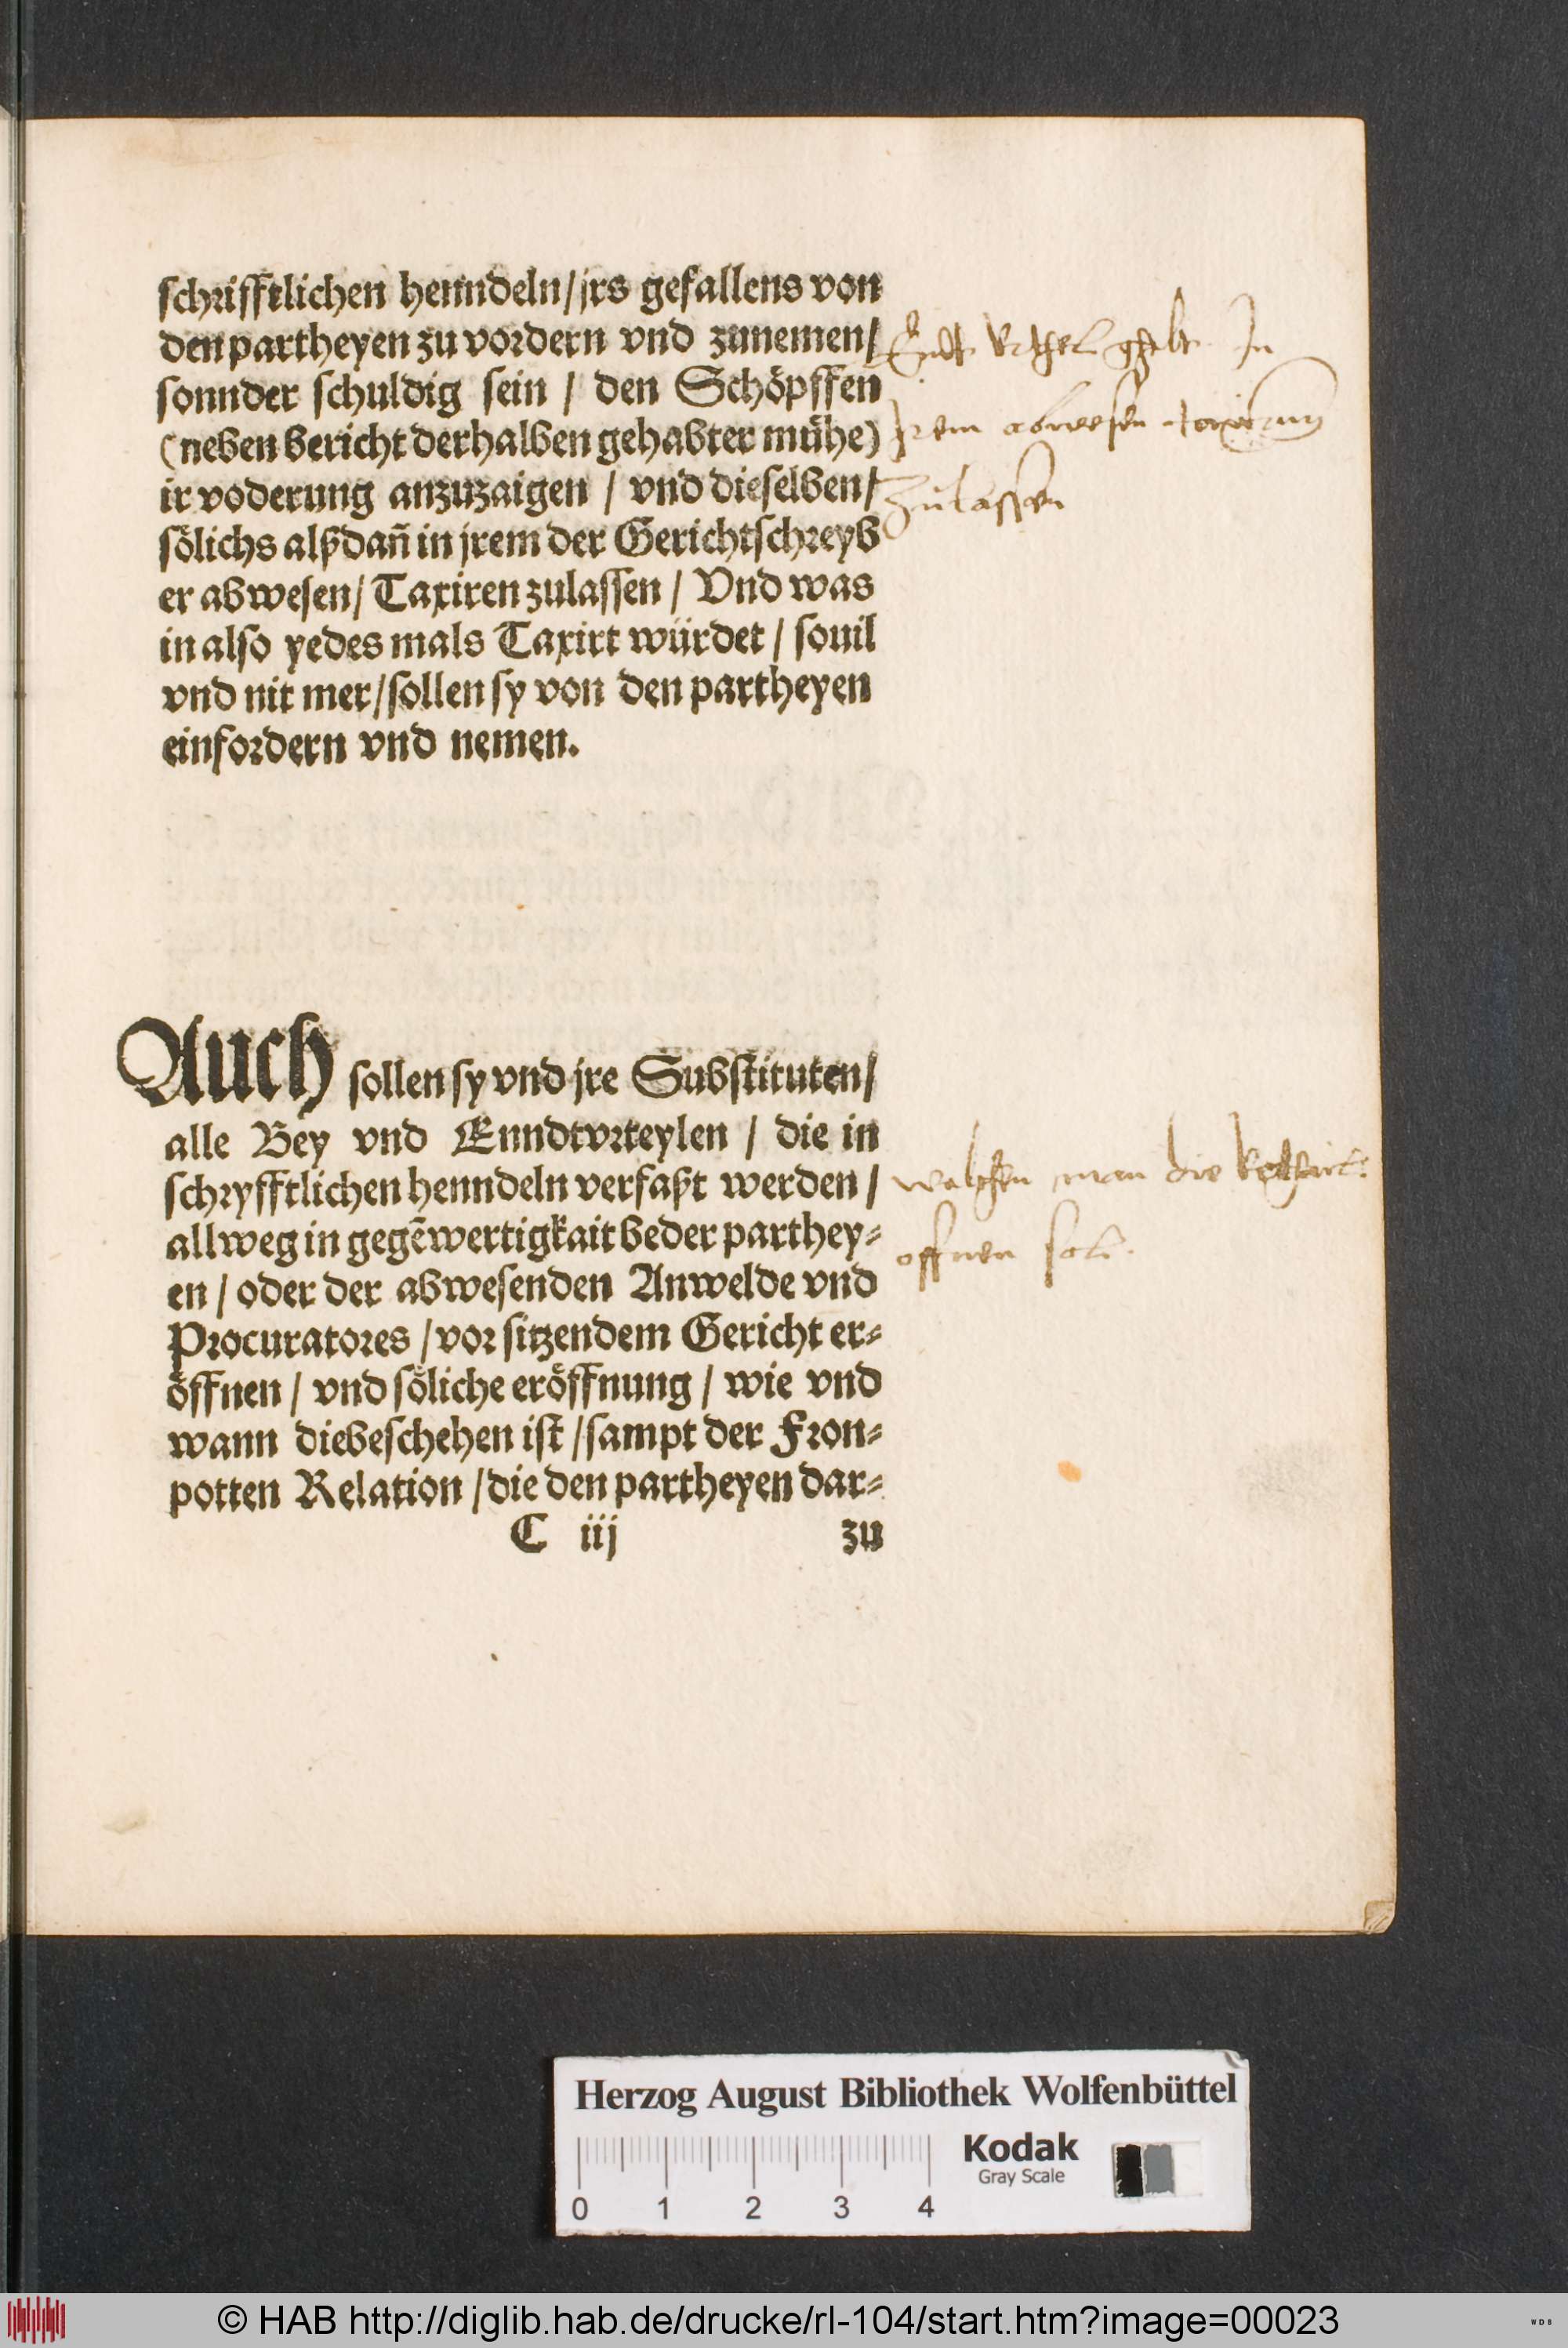 schrifftlichen henndeln/jrs gefallens von
den partheyen zu vordern vnd zunemen/
sonnder schuldig sein / den Schöpffen
(neben bericht derhalben gehabter mühe)
ir voderung anzuzaigen / vnd dieselben/
sölichs alßdañ in jrem der Gerichtschreyb
er abwesen/ Taxiren zulassen / Vnd was
in also yedes mals Taxirt würdet / souil
vnd nit mer/sollen sy von den partheyen
einfordern vnd nemen.
In
jrem abwesen taxirung
zulassen
Auch sollen sy vnd jre Substituten/
alle Bey vnd Enndtvrteylen / die in
schryfftlichen henndeln verfaßt werden /
allweg in gegēwertigkait beder parthey-
en / oder der abwesenden Anwelde vnd
Procuratores /vor sitzendem Gericht er-
öffnen / vnd söliche eröffnung / wie vnd
wann die beschehen ist /sampt der Fron-
potten Relation /die den partheyen dar-
C iij zu
man die
offnen soll.
Herzog August Bibliothek Wolfenbüttel
Kodak
Gray Scale
0 1 2 3 4
© HAB http://diglib.hab.de/drucke/rl-104/start.htm?image=00023
WDB